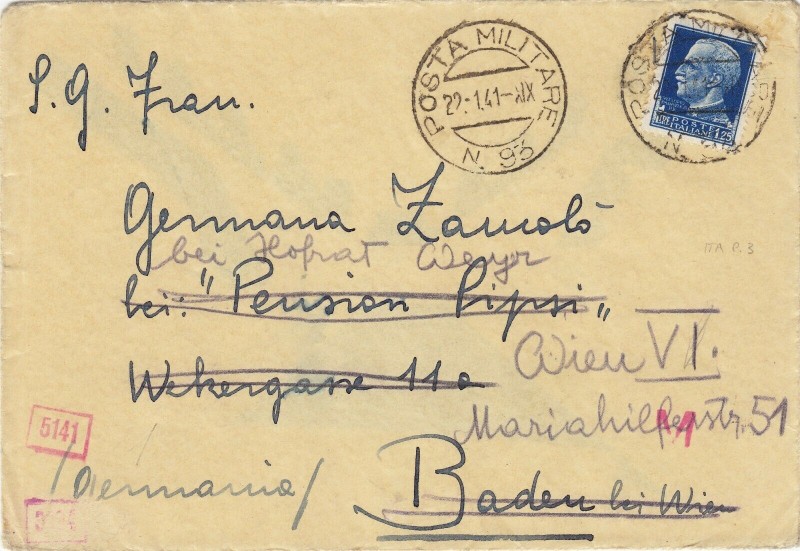 POSTA MILITARE
22.1.41-XIX
N. 93
POSTA MILITARE
N.
POSTE
ITALIANE
LIRE 1,25
S. G. Frau.
Germana Zamolò
bei Hofrat Weyr
bei: "Pension Pipsi"
Wien VI.
Wekergasse 11a
Mariahilferstr. 51
5141
/Germania/
Baden bei Wien
ITA P. 3